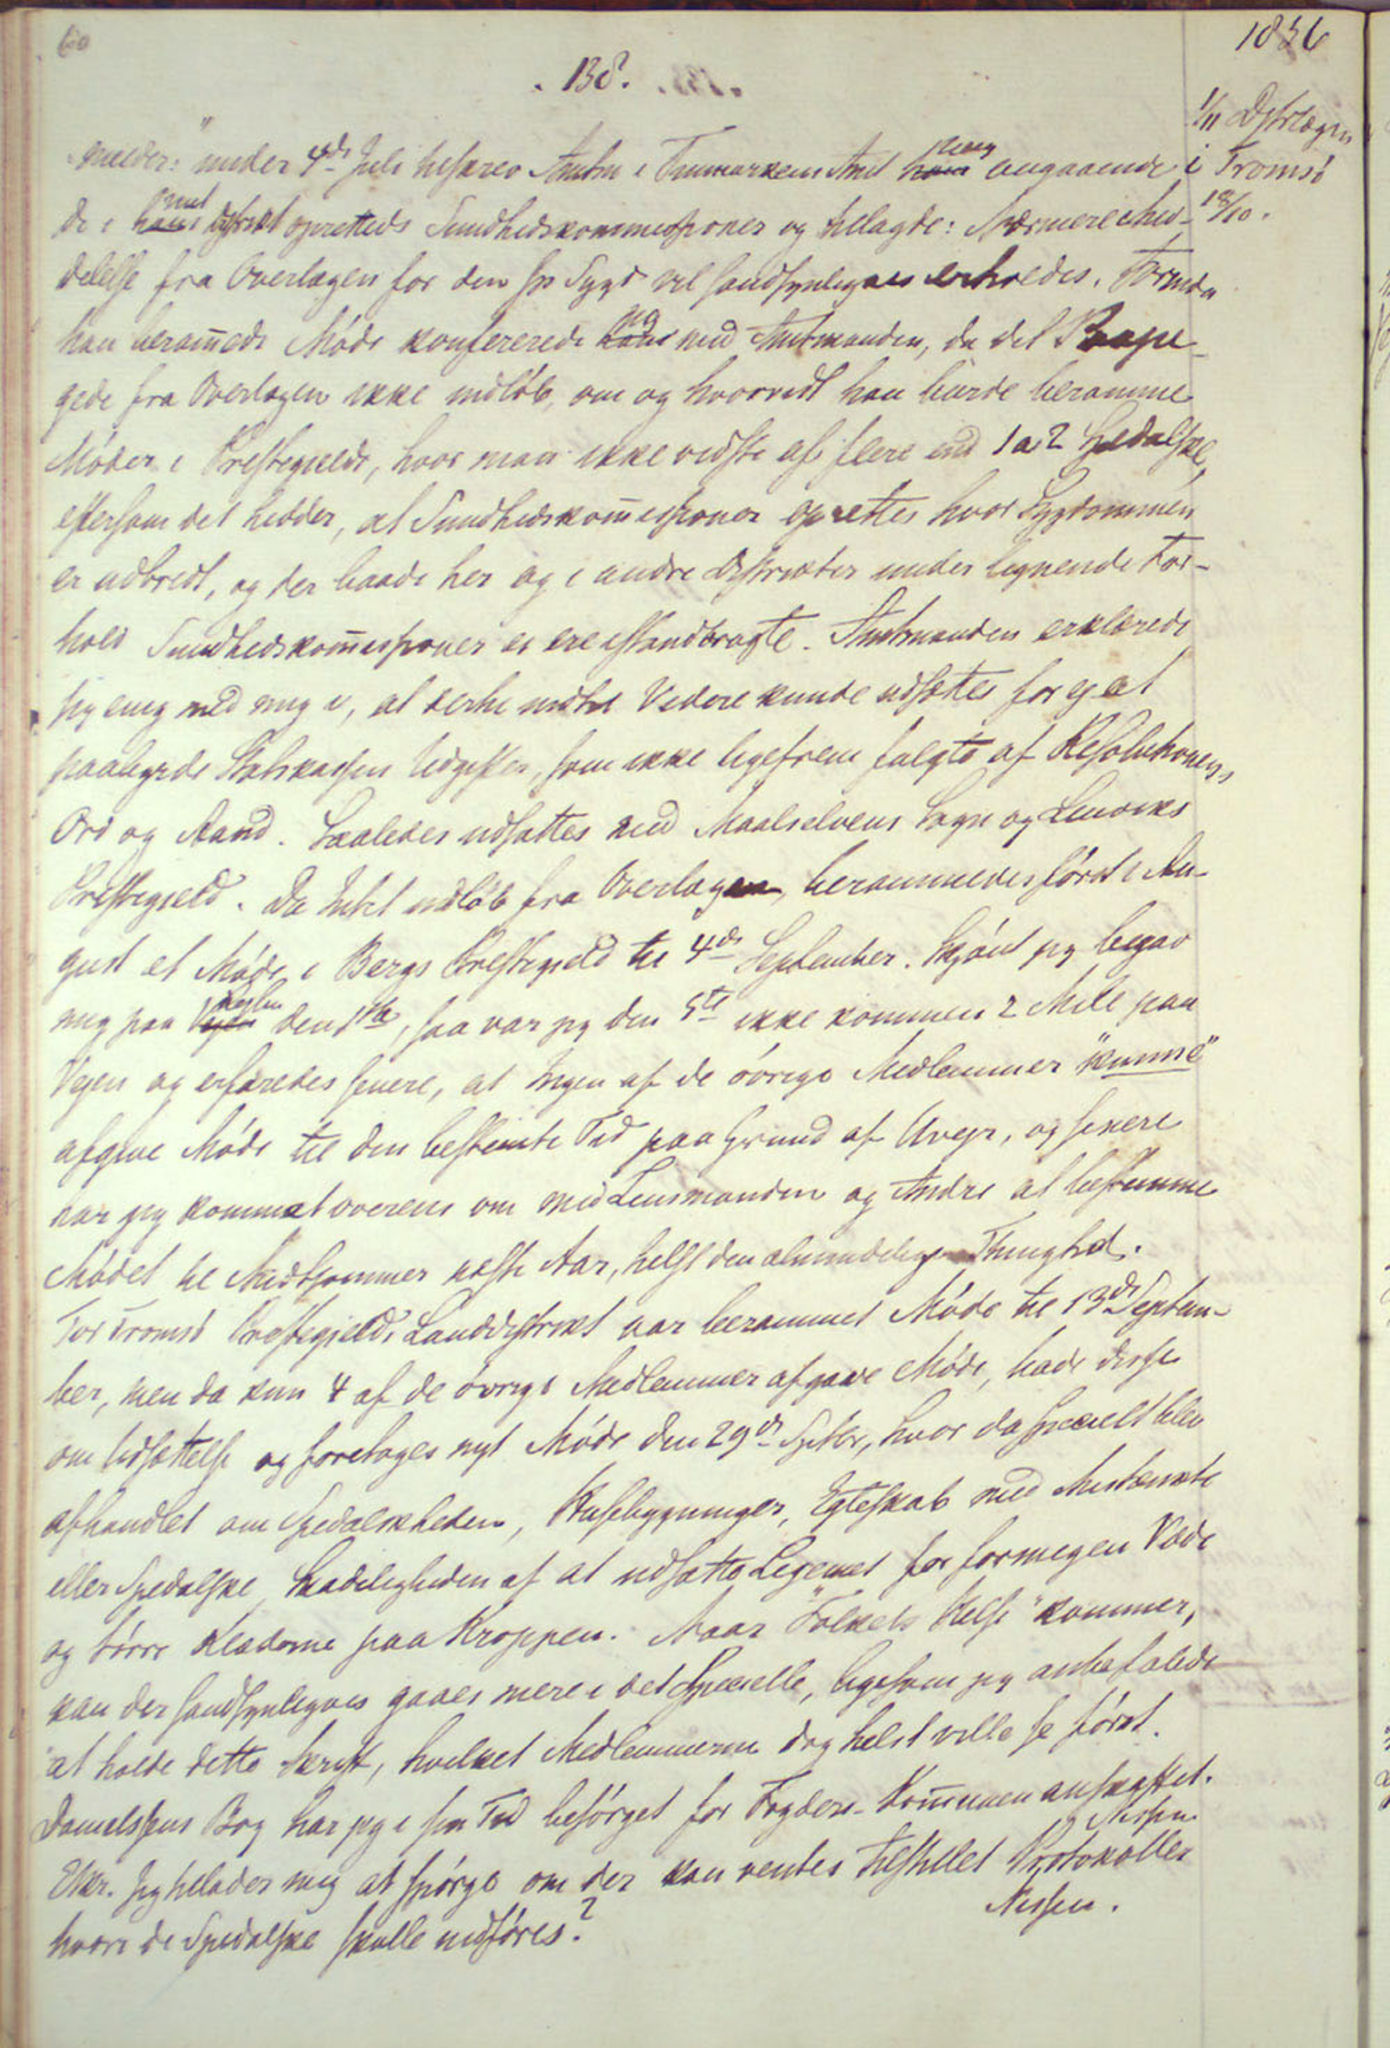 60
1856
. 138.
1/11 Dstrlægen
i Tromsö
18/10.
melder: "under 4de Juli beskrev Amtm i Finmarkens Amt ham mig angaaende
de i hans mit Distrikt oprettede Sundhedskommissioner og tillagde: Nærmere Med-
delelse fra Overlægen for den sp Sygd vil sandsynligvis erholdes. Förinden
han berammede Möde konfererede han jeg med Amtmanden, da det
gede fra Overlægen ikke indlöb, om og hvorvidt han burde beramme
Möder i Præstegjelde, hvor man ikke vidste af flere end 1 a 2 Spedalske,
eftersom det hedder, at Sundhedskommissioner oprettes hvor Sygdommen
er udbredt, og der baade her og i andre Distrikter under lignende For-
hold Sundhedskommissioner ei ere istandbragte. Amtmanden erklærede
sig enig med mig i, at dette indtil Videre kunde udsættes for ej at
paabyrde Statskassen Udgifter, som ikke ligefrem fulgte af Resolutionens
Ord og Aand. Saaledes udsattes med Maalselvens Sogn og Lenviks
Præstegjeld. Da Intet indlöb fra Overlægen, berammedes först i Au-
gust et Möde i Bergs Præstegjeld til 4de September. Skjönt jeg begav
mig paa Vejen den 1ste, saa var jeg den 5te ikke kommen 2 Mile paa
Vejen og erfaredes senere, at Ingen af de övrige Medlemmer "kunne"
afgive Möde til den bestemte Tid paa Grund af Uvejr, og senere
har jeg kommet overens om med Lensmanden og Andre at bestemme
Mödet til Midtsommer næste Aar, helst den almindelige Thingtid.
For Tromsö Præstegjelds Landdistrikt var berammet Möde til 13de Septem-
ber, men da kun 4 af de övrige Medlemmer afgave Möde, bade disse
om Udsættelse og foretages nyt Möde den 29de Septbr, hvor da specielt blev
afhandlet om Spedalskheden, Husebygninger, Egteskab med Mistænkte
eller Spedalske, Skadeligheden af at udsætte Legemet for formegen Væde
og törre Klæderne paa Kroppen. Naar "Folkets Helse" kommer,
kan der sandsynligvis gaaes mere i det Specielle, ligesom jeg anbefalede
at holde dette Skrift, hvilket Medlemmerne dog helst ville se först.
Danielssens Bog har jeg i sin Tid besörget for Fogderi-Kommunen anskaffet.
Nissen
Eskr. Jeg tillader mig at spörge om der kan ventes tilstillet Protokoller
hvori de Spedalske skulle indföres?
Nissen.